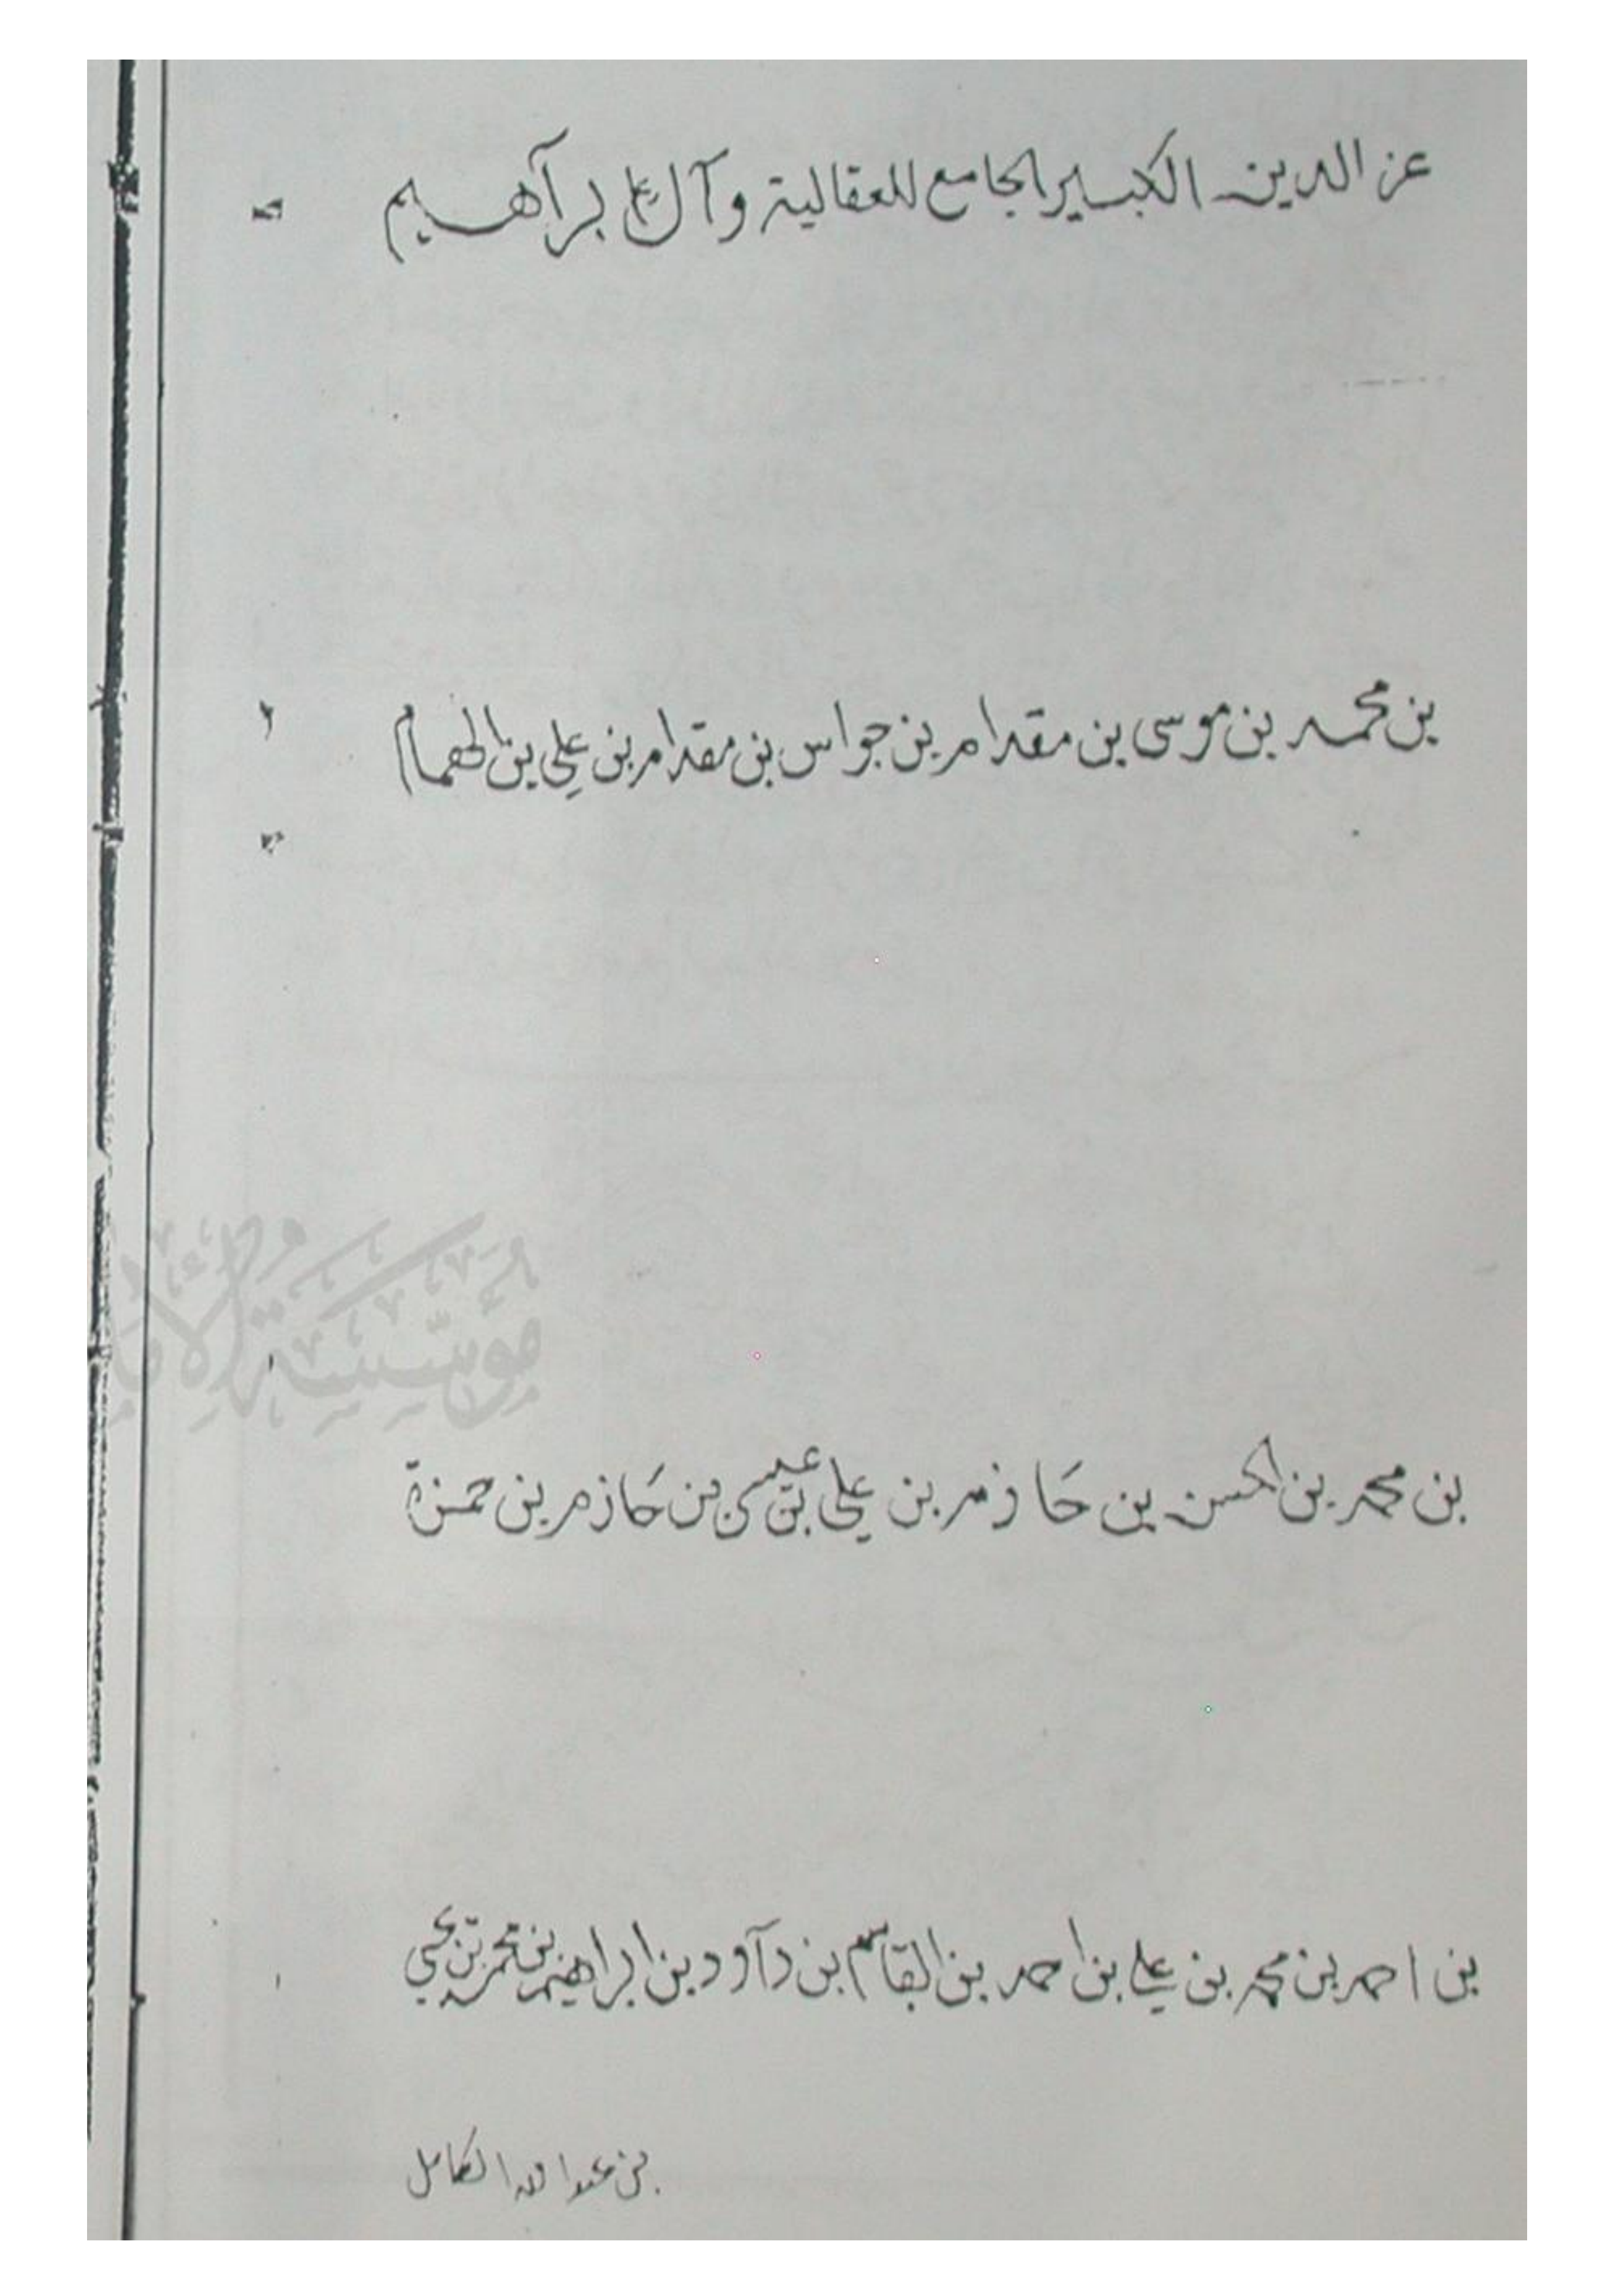 عز الدين الكبير الجامع للعقالية وآل علي برآهيم
بن محمد بن موسى بن مقدام بن جواس بن مقدام بن علي بن الهمام
مؤسسة
بن محمد بن الحسن بن حازم بن علي بن عيسى بن حازم بن حمزة
بن احمد بن محمد بن علي بن احمد بن القاسم بن دآود بن ابراهيم بن محمد بن يحيى
بن عبد الله الكامل